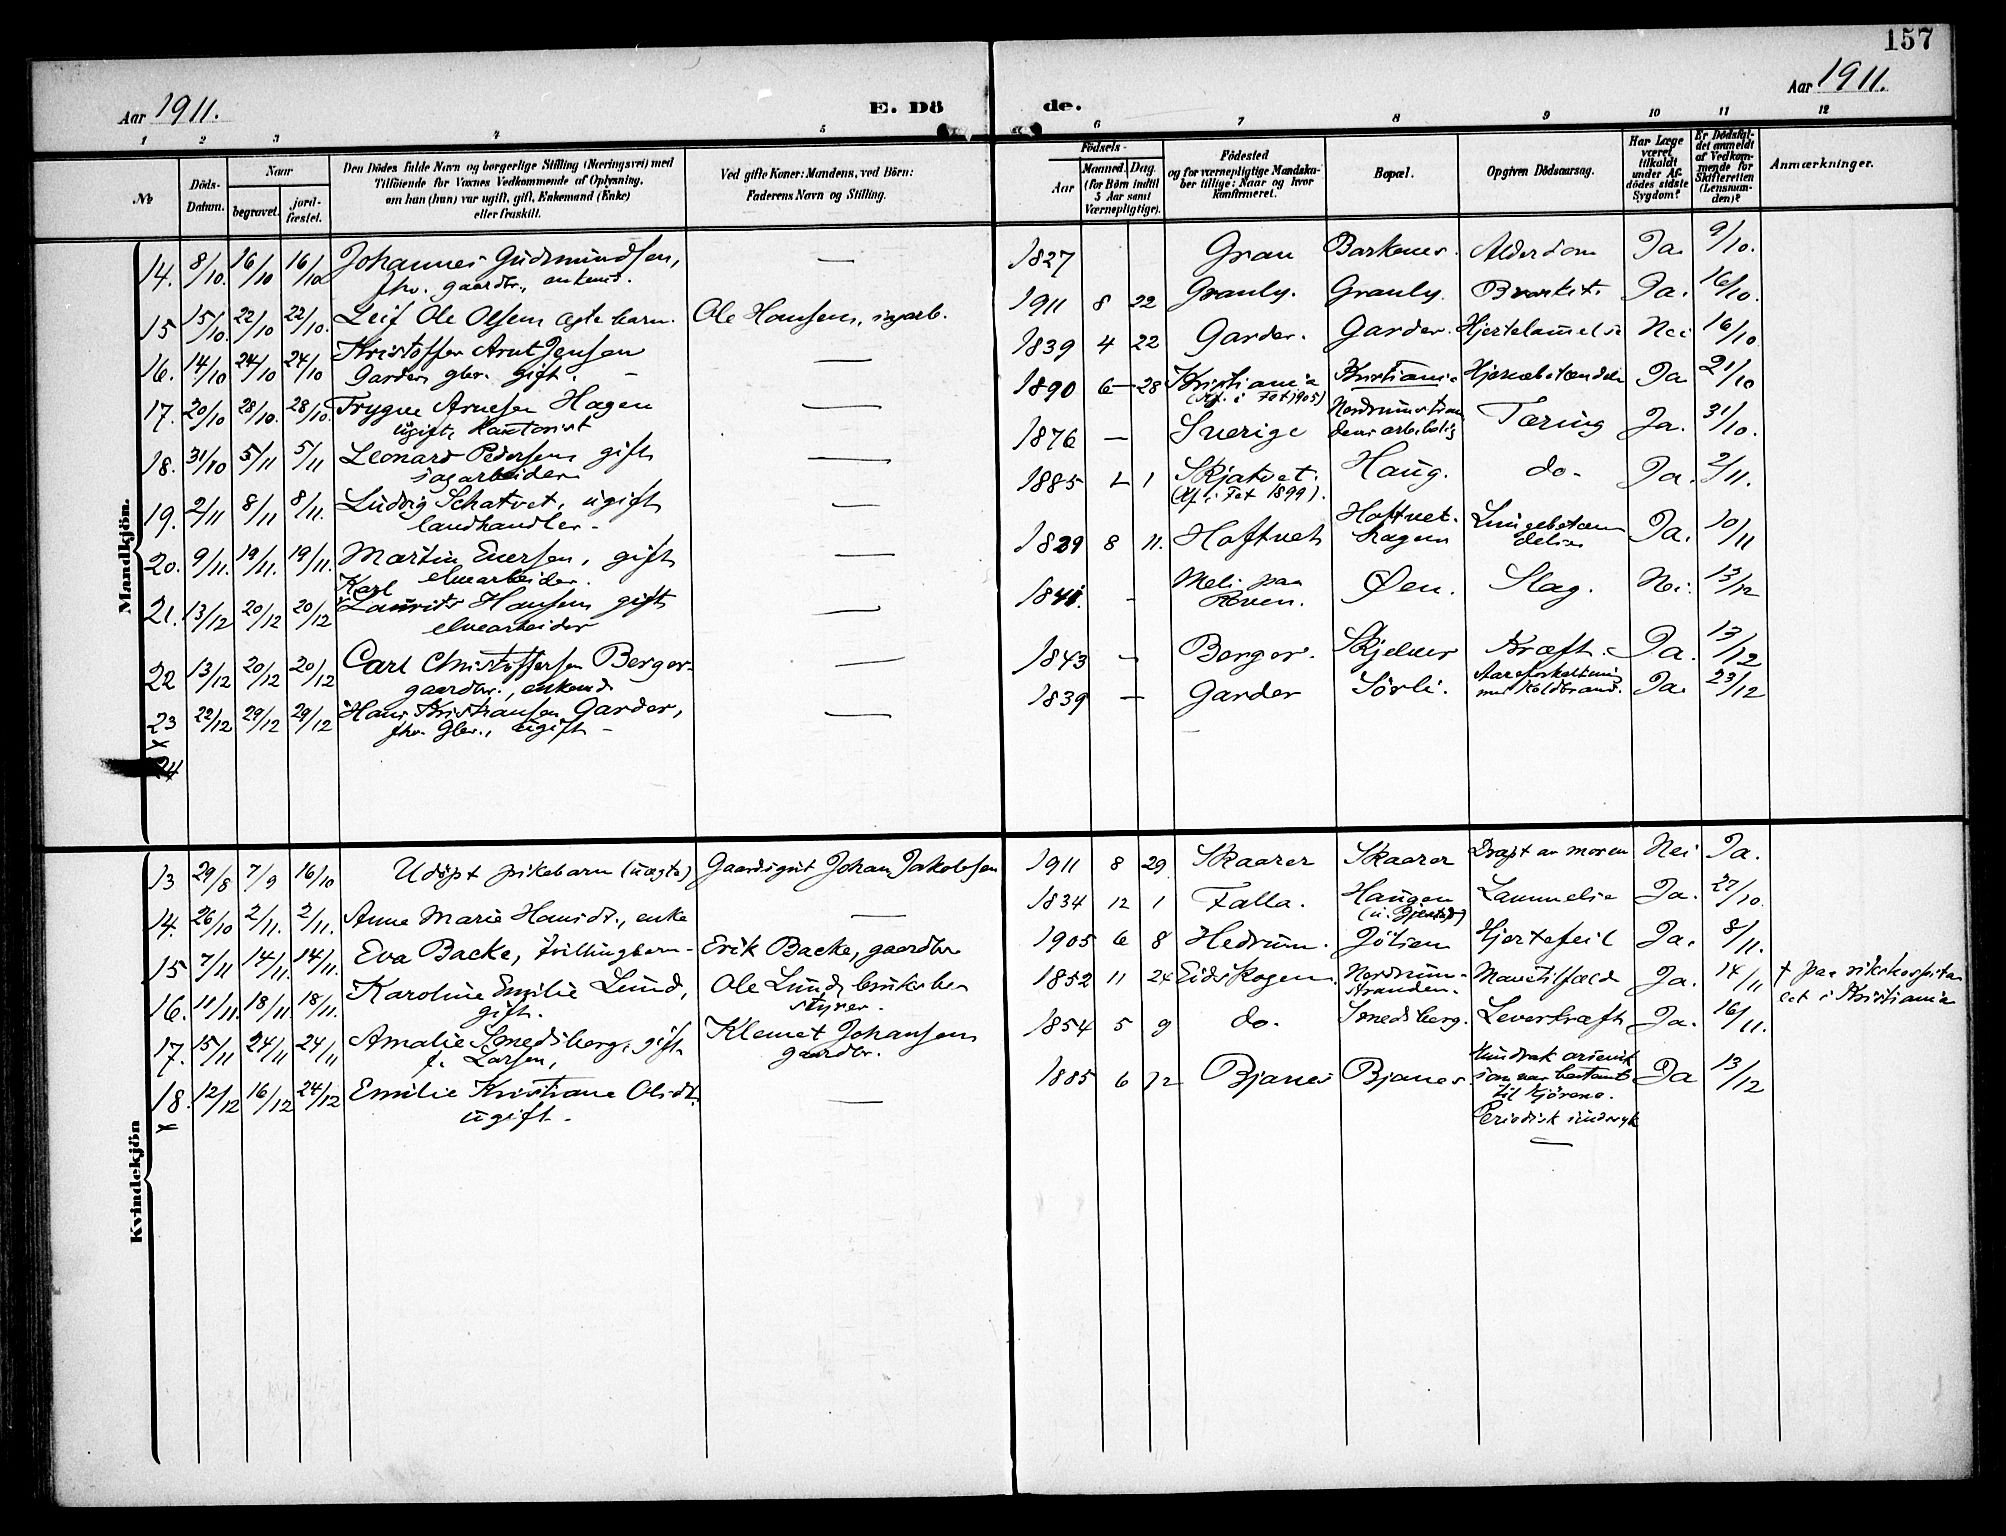 157
Aar 1911. E. Dö de. Aar 1911.
1 2 3 4 5 6 7 8 9 10 11 12
No
Döds-Datum.
Naar
begravet.
jordfæstet.
Den Dödes fulde Navn og borgerlige Stilling (Næringsvei) med
Tilföiende for Voxnes Vedkommende af Oplysning,
om han (hun) var ugift, gift, Enkemand (Enke)
eller fraskilt.
Ved gifte Koner: Mandens, ved Börn:
Faderens Navn og Stilling.
Födsels-
Aar
Maaned. Dag.
(for Börn indtil
5 Aar samt
Værnepligtige).
Födested
og for værnepligtige Mandskaber tillige: Naar og hvor
konfirmeret.
Bopæl.
Opgiven Dödsaarsag.
Har Læge
været
tilkaldt
under Afdödes sidste
Sygdom?
Er Dödsfaldet anmeldt
af Vedkommende for
Skifteretten
(Lensmanden)?
Anmærkninger.
Mandkjön.
14. 8/10. 16/10 16/10 Johannes Gudmundsen, — 1827 Gran Barkenes. Alderdom Ja. 9/10.
fhv. gaardbr., enkemd.
15 15/10. 22/10 22/10. Leif Ole Olsen ægte barn. Ole Hansen, sagarb. 1911 8 22 Granly. Granly. Bronkit. Ja. 16/10.
16. 14/10 24/10 24/10 Kristoffer Arnt Jensen — 1839 4 22 Garder. Garder. Hjertelammelse Nei 16/10
Garder, gbr. gift. —
17. 20/10 28/10. 28/10. Trygve Arnesen Hagen — 1890 6 — 28 Kristiania Kristiania Ja 21/10
(Kf. i Fet 1905)
ugift, kontorist
18. 31/10 5/11 5/11 Leonard Pedersen gift — 1876 — Sverige Tæring Ja. 31/10.
sagarbeider
19. 2/11 8/11 8/11. Ludvig Schatvet, ugift — 1885 1 Skjatvet. Haug. do- Ja. 2/11.
(Kf. i Fet 1899).
landhandler -
20. 9/11. 19/11. 19/11. Martin Evensen, gift — 1829 8 11. Hoftvet Hoftvet- Lungebetæn Ja. 10/11
hagen delse
elvearbeider.
21. 13/12 20/12 20/12 Karl Laurits Hansen gift — 1841. - Øen. Slag. Nei. 13/12
elvearbeider
22 13/12 20/12 20/12 Carl Christoffersen Berger- — 1843 - Berger. Skjelver Kræft. Ja. 13/12
gaardbr., enkemd
23 22/12 29/12 29/12 Hans Kristiansen Garder, — 1839 — Garder Sörli. Aareforkalkning Ja. 23/12
med koldbrand.
fhv. gbr., ugift -
24
Kvindekjön
13 29/8 7/9 16/10 Udöpt pikebarn (uægte) Gaardsgut Johan Jakobsen 1911 8 29 Skaarer Skaarer Dræpt av moren Nei Ja.
14. 26/10 2/11. 2/11. Anne Marie Hansdt., enke — 1834 12 1 Falla. Haugen Lammelse Ja. 27/10.
15 7/11 14/11. 14/11. Eva Backe, tvillingbarn- Erik Backe, gaardbr 1905 6 8 Hedrum. Jölsen Hjertefeil Ja. 8/11.
16. 11/11. 18/11 18/11. Karoline Emilie Lund, Ole Lund, bruksbe 1852 11 24 Eidskogen. Nordrum- Mavetilfæld Ja. 14/11 † paa rikshospita
gift. styrer. stranden. let i Kristiania
17. 15/11 24/11 24/11 Amalie Smedsberg, gift Klemet Johansen 1854 5 9 do. Smedsberg. Leverkræft Ja. 16/11.
f. Larsen, gaardbr.
18. 12/12 16/12 24/12 Emilie Kristiane Olsdt. — 1885 6 12 Bjanes Bjanes. Hun drak arsenik Ja 13/12
ugift. som var bestemt
til kjörene.
Periodisk sindssyk